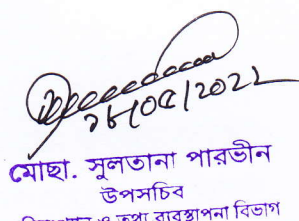 ২৮/০৫/2022
মোছা. সুলতানা পারভীন
উপসচিব
ও তথ্য ব্যবস্থাপনা বিভাগ